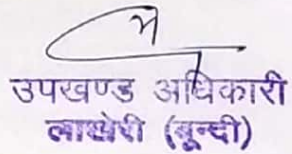 उपखण्ड अधिकारी
लाखेरी (बुन्दी)